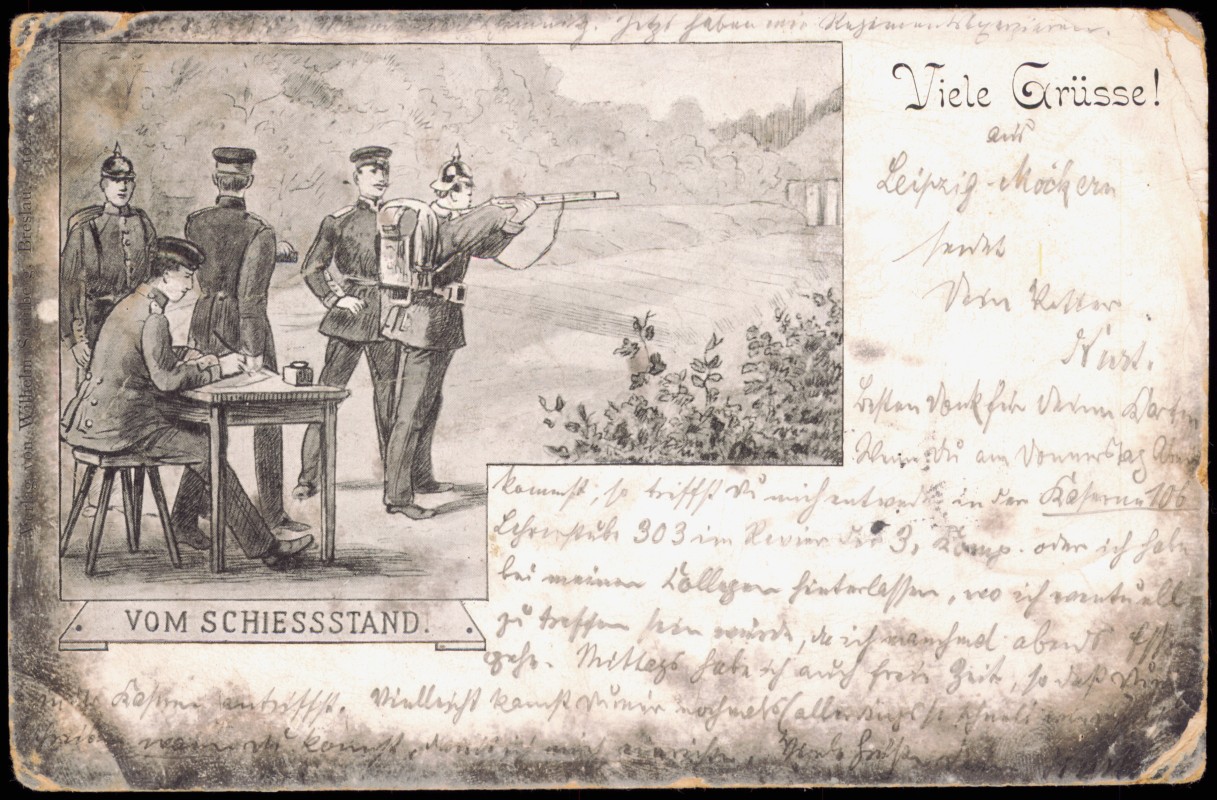 Jetzt haben wir Regimentsexerzieren.
Viele Grüsse!
aus
Leipzig-Möckern
sendet
Dein Vetter
Kurt.
Besten Dank für Deine Karte
Wenn Du am Donnerstag
kommst, so triffst Du mich entweder in der Kaserne 106
Lehrerstube 303 im Revier der 3. Komp. oder ich habe
bei meinen Collegen hinterlassen, wo ich eventuell
zu treffen sein würde, da ich manchmal abends
gehe. Mittags habe ich auch freie Zeit, so daß Du
Kaserne antriffst. Vielleicht kannst Du mir nochmals (allerdings schnell
wann Du kommst, damit ich mich einrichte. Viele Grüße
VOM SCHIESSSTAND.
Verlag von Wilhelm Breslau